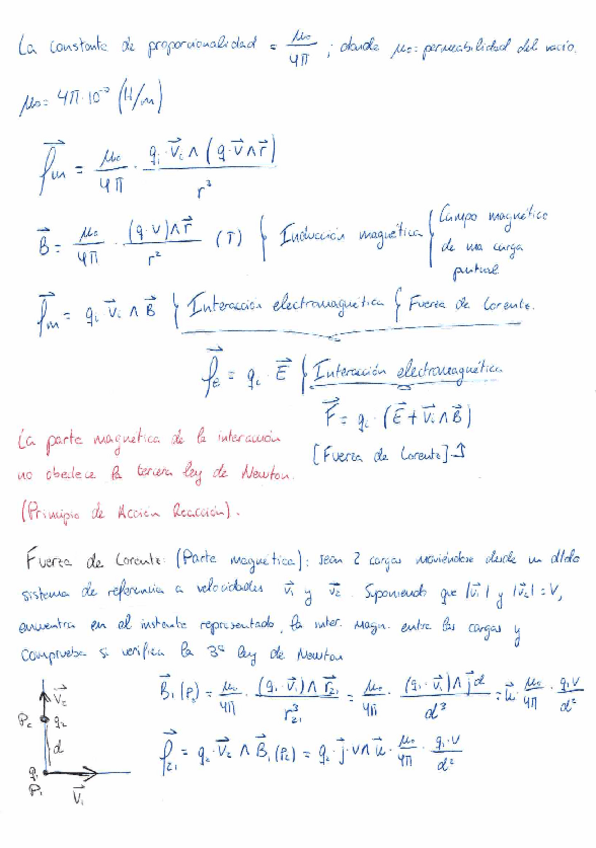 La constante de proporcionalidad = μ₀/4π ; donde μ₀ = permeabilidad del vacío.
μ₀ = 4π·10⁻⁷ (H/m)
f⃗m = μ₀/4π · qᵢ·v⃗ᵢ ∧ (q·v⃗∧r⃗)/r³
B⃗ = μ₀/4π · (q·v)∧r⃗/r² (T) { Inducción magnética { Campo magnético
de una carga
puntual
f⃗m = qᵢ v⃗ᵢ ∧ B⃗ { Interacción electromagnética { Fuerza de Lorente.
f⃗E = qᵢ · E⃗ { Interacción electromagnética
F⃗ = qᵢ · (E⃗ + v⃗ᵢ∧B⃗)
[Fuerza de Lorente]
La parte magnética de la interacción
no obedece la tercera ley de Newton.
(Principio de Acción Reacción).
Fuerza de Lorente: (Parte magnética): sean 2 cargas moviéndose desde un dtdo
sistema de referencia a velocidades v⃗₁ y v⃗₂. Suponiendo que |v⃗₁| y |v⃗₂| = V,
encuentra en el instante representado, la inter. magn. entre las cargas y
comprueba si verifica la 3ª ley de Newton
B⃗₁(P₂) = μ₀/4π · (q₁·v⃗₁)∧r⃗₂₁/r³₂₁ = μ₀/4π · (q₁·v⃗₁)∧j⃗d/d³ = u⃗ · μ₀/4π · q₁v/d²
f⃗₂₁ = q₂·v⃗₂ ∧ B⃗₁(P₂) = q₂·j⃗·v∧u⃗ · μ₀/4π · q₁·v/d²
v⃗₂
P₂ q₂
d
q₁
P₁
v⃗₁